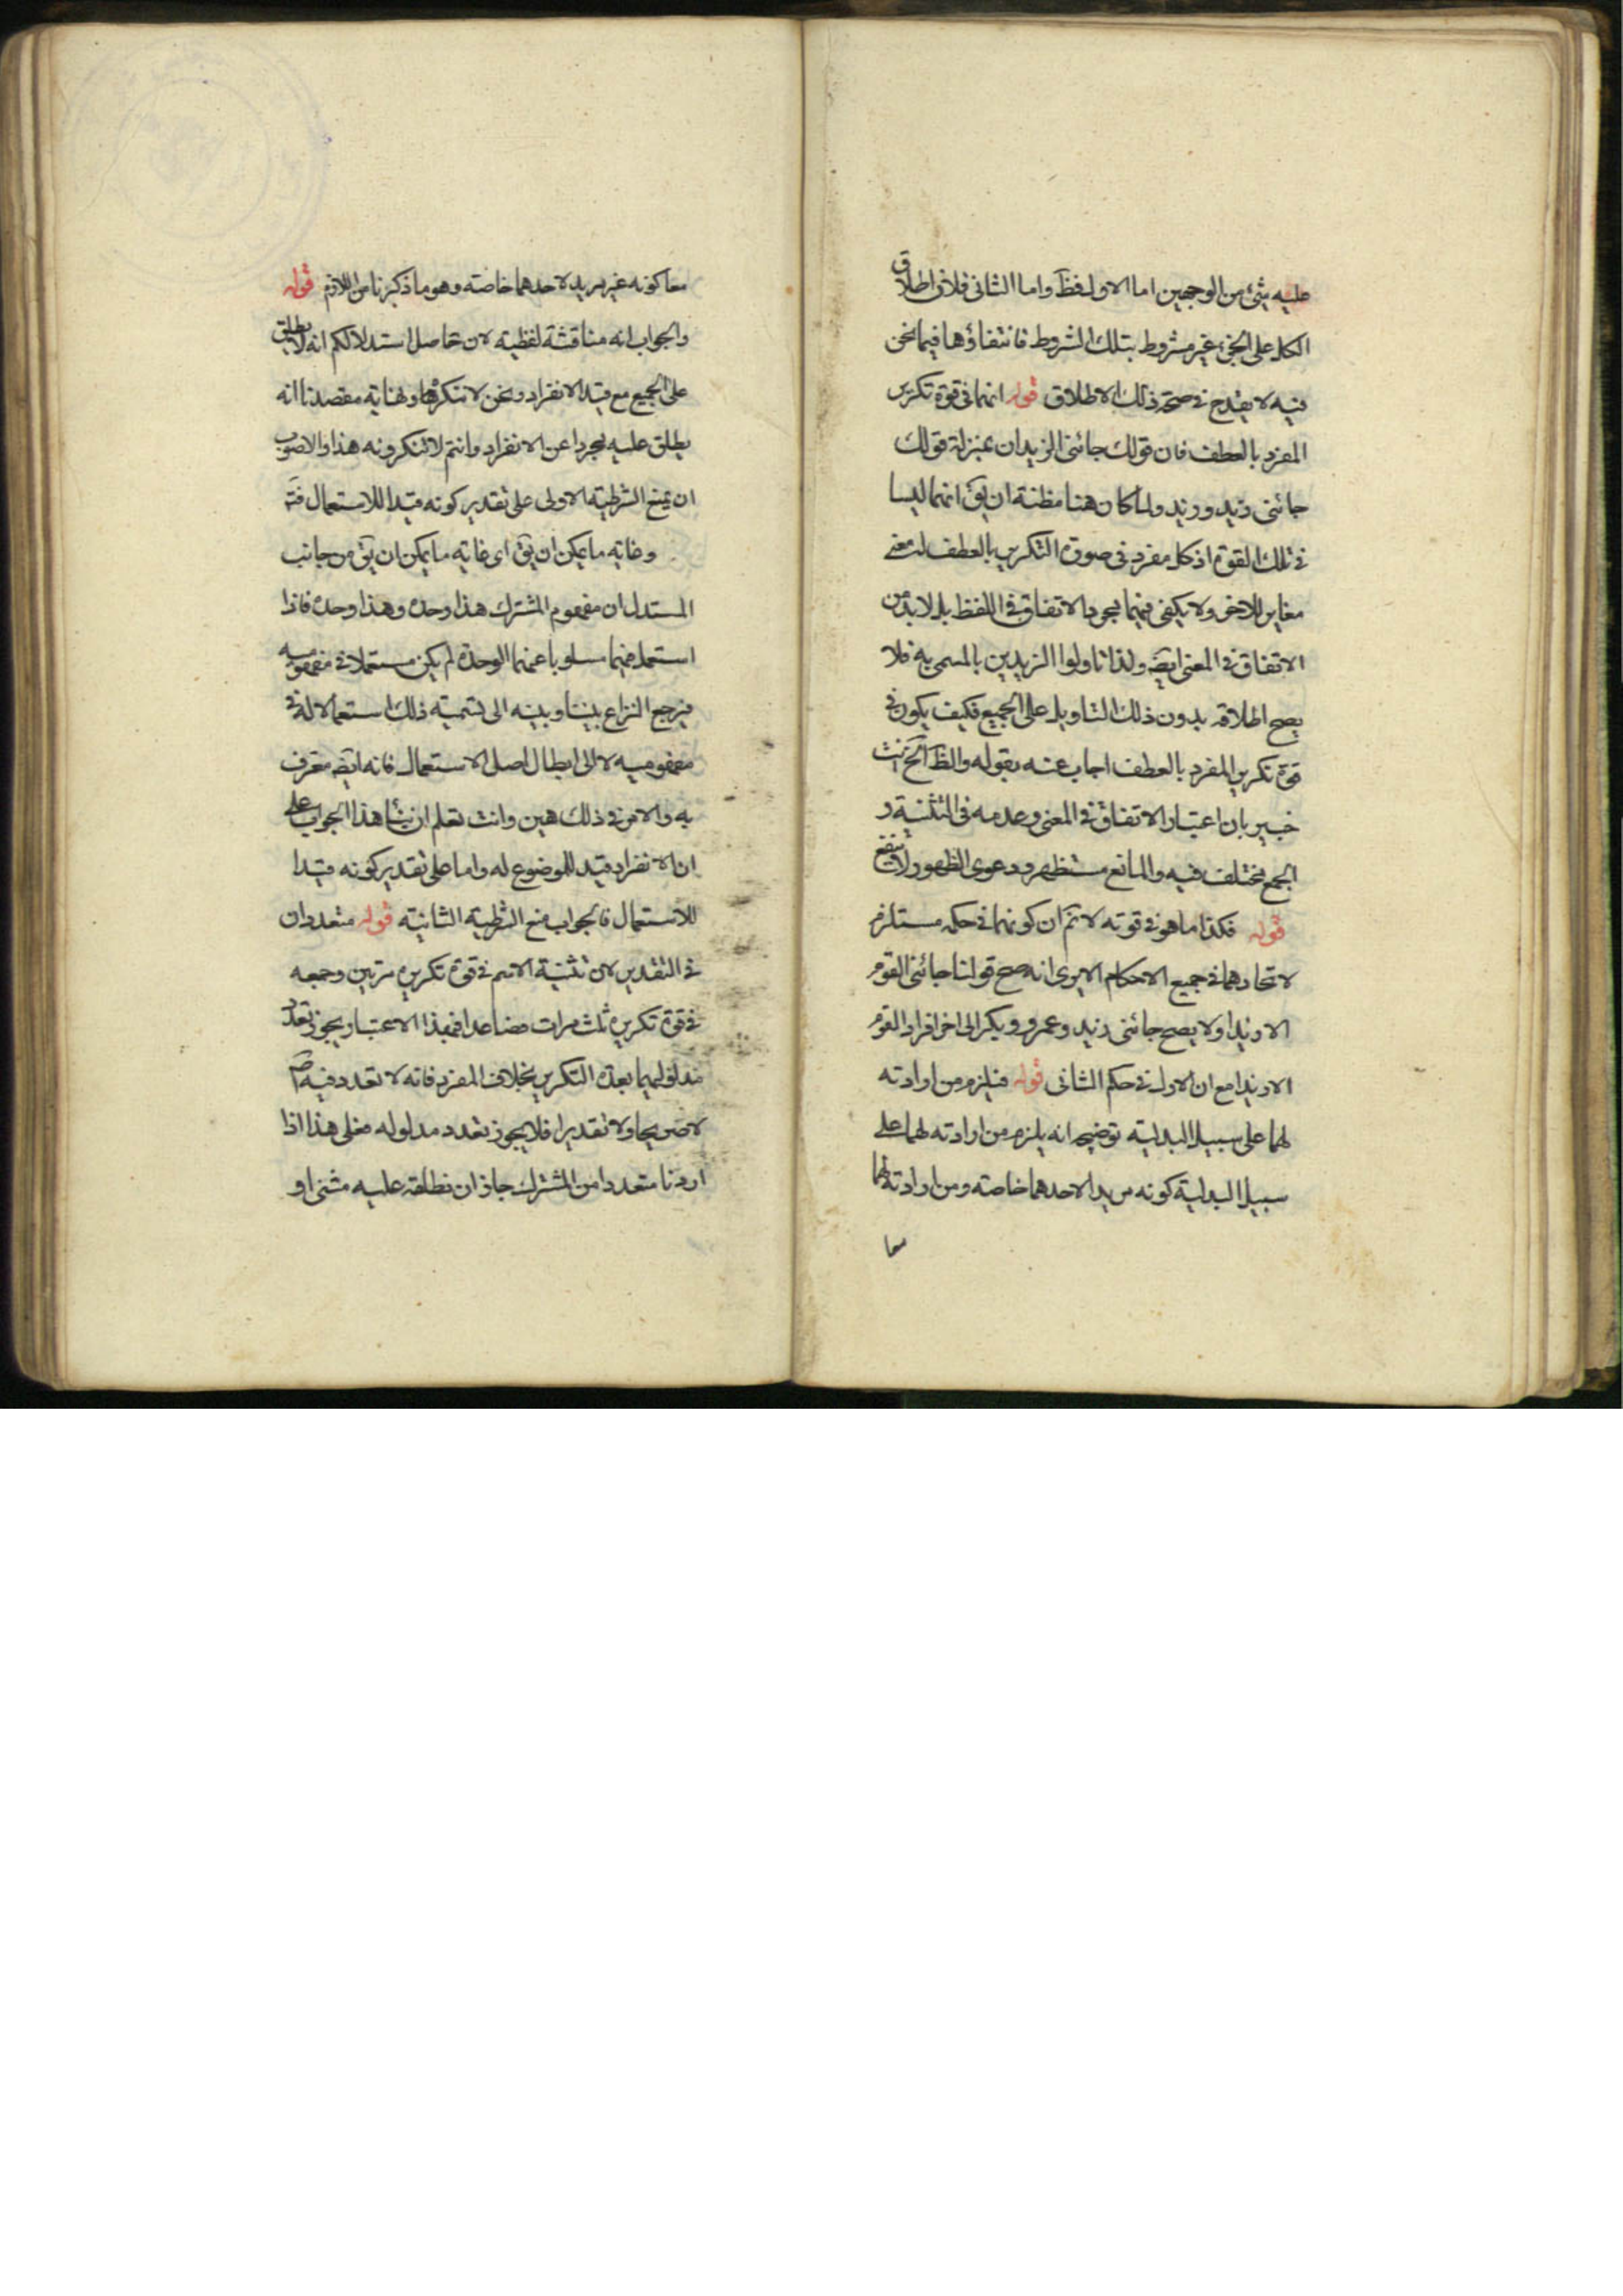 عليه شئ من الوجهين اما الاول فظ واما الثانى فلان اطلاق
الكل على الجزء غير مشروط بتلك الشروط فانتفاؤها فيما نحن
فيه لا يقدح فى صحة ذلك الاطلاق قوله انهما فى قوة تكرير
المفرد بالعطف فان قولك جائنى الزيدان بمنزلة قولك
جائنى زيد وزيد ولما كان هنا مظنة ان يق انهما ليسا
فى تلك القوة اذ كل مفرد فى صورة التكرير بالعطف له معنى
مغاير للاخر ولا يكفى فيهما مجرد الاتفاق فى اللفظ بل لا بد من
الاتفاق فى المعنى ايضه ولذا تاولوا الزيدين بالمسمى به فلا
يصح اطلاقه بدون ذلك التاويل على الجميع فكيف يكون فى
قوة تكرير المفرد بالعطف اجاب عنه بقوله والظ الخ انت
خبير بان اعتبار الاتفاق فى المعنى وعدمه فى التثنية و
الجمع مختلف فيه والمانع مستظهر ودعوى الظهور لا تنفع
قوله فكذا ما هو فى قوته لا نم ان كونهما فى حكمه مستلزم
لاتحادهما فى جميع الاحكام الا يرى انه صح قولنا جائنى القوم
الا زيدا ولا يصح جائنى زيد وعمرو وبكر الى اخر افراد القوم
الا زيدا مع ان الاول فى حكم الثانى قوله فيلزم من ارادته
لهما على سبيل البدلية توضيحه انه يلزم من ارادته لهما على
سبيل البدلية كونه مريدا لاحدهما خاصته ومن ارادته لهما
معا
معا كونه غير مريد لاحدهما خاصته وهو ما ذكرنا من اللازم قوله
والجواب انه مناقشة لفظية لان حاصل استدلالكم انه لا يطلق
على الجميع مع قيد الانفراد ونحن لا ننكرها ونهاية مقصدنا انه
يطلق عليه مجردا عن الانفراد وانتم لا تنكرونه هذا والاصوب
ان يمنع الشرطية الاولى على تقدير كونه قيدا للاستعمال فته
وغاية ما يمكن ان يق اى غاية ما يمكن ان يق من جانب
المستدل ان مفهوم المشترك هذا وحده وهذا وحده فاذا
استعمل فيهما مسلوبا عنهما الوحدة لم يكن مستعملا فى مفهوميه
فيرجع النزاع بيننا وبينه الى تسمية ذلك استعمالا له فى
مفهوميه لا الى ابطال اصل الاستعمال فانه ايضه معترف
به والامر فى ذلك هين وانت تعلم ان بناء هذا الجواب على
ان الانفراد قيد للموضوع له واما على تقدير كونه قيدا
للاستعمال فالجواب منع الشرطية الثانية قوله متعددان
فى التقدير لان تثنية الاسم فى قوة تكريره مرتين وجمعه
فى قوة تكريره ثلث مرات فصاعدا فبهذا الاعتبار يجوز تعدد
مدلوليهما بعدة التكرير بخلاف المفرد فانه لا تعدد فيه
لا صريحا ولا تقديرا فلا يجوز تعدد مدلوله فعلى هذا اذا
اردنا متعددا من المشترك جاز ان نطلقه عليه مثنى او